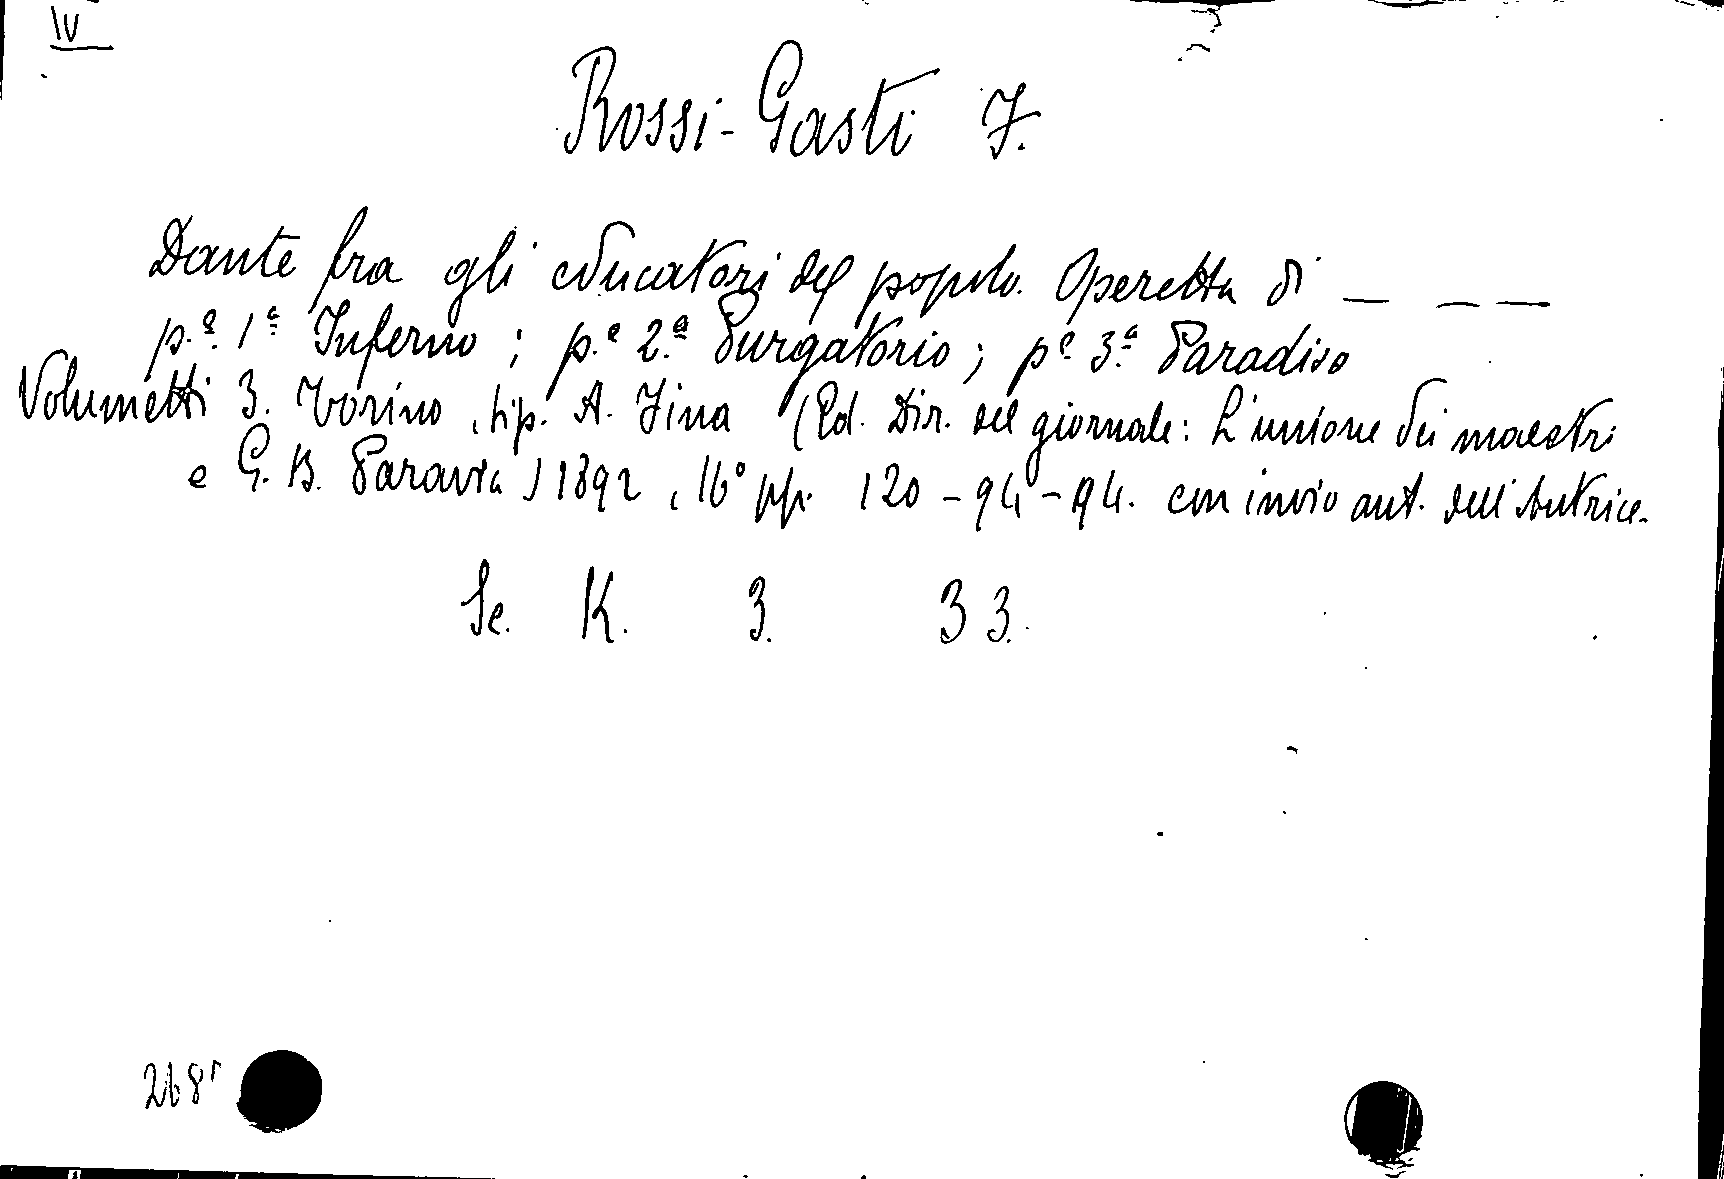 IV
Rossi-Gasti F.
Dante fra gli educatori del popolo. Operetta di _ _ _
p.e 1a Inferno; p.e 2.a Purgatorio; pe 3.a Paradiso
Volumetti 3. Torino, tip. A. Fina (Ed. Dir. del giornale: L'unione dei maestri
e G. B. Paravia) 1892, 16° pp. 120-94-94. con invio aut. dell'Autrice.
Se. K. 3. 33.
268r